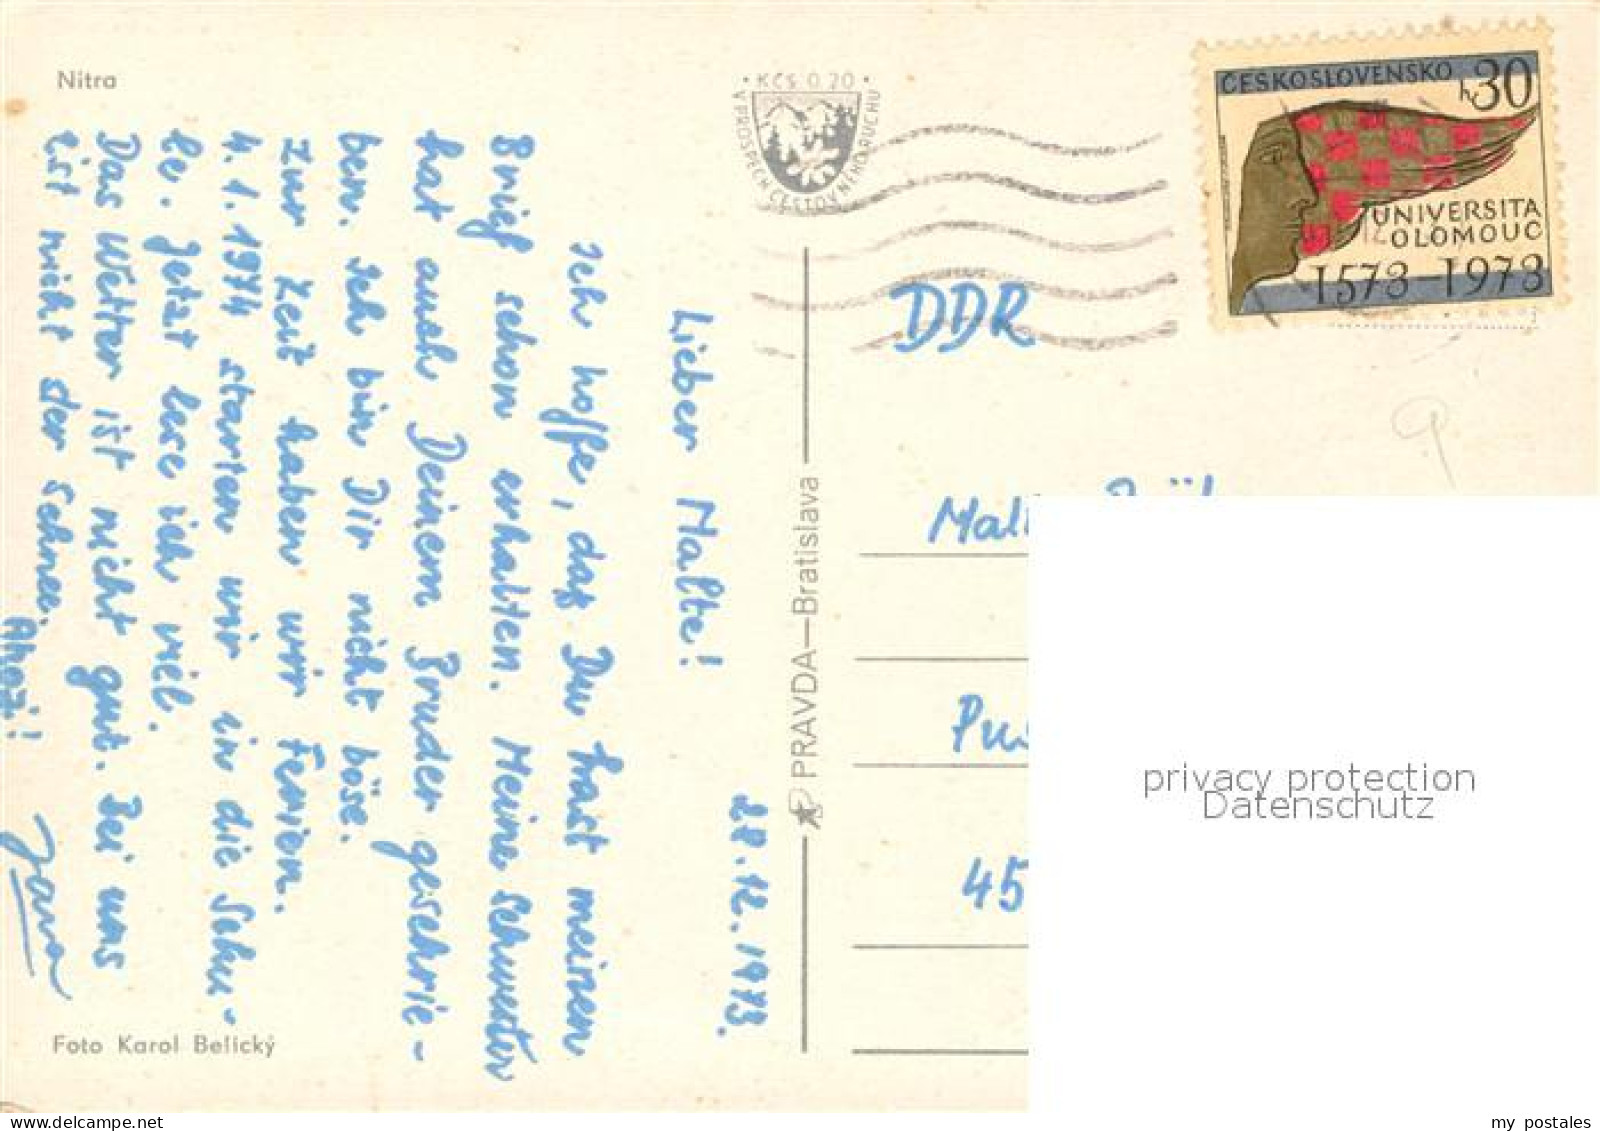 Nitra
• KČS 0,20 •
V PROSPECH CESTOVNÍHO RUCHU
ČESKOSLOVENSKO
h 30
UNIVERSITA
OLOMOUC
1573–1973
DDR
28.12.1973.
Lieber Malte!
Ich hoffe, daß Du hast meinen
Brief schon erhalten. Meine Schwester
hat auch Deinem Bruder geschrie-
ben. Ich bin Dir nicht böse.
Zur Zeit haben wir Ferien.
4. 1. 1974 starten wir in die Schu-
le. Jetzt lese ich viel.
Das Wetter ist nicht gut. Bei uns
ist nicht der Schnee.
Ahoj!
Jana
PRAVDA—Bratislava
45
Foto Karol Belický
privacy protection
Datenschutz
my postales